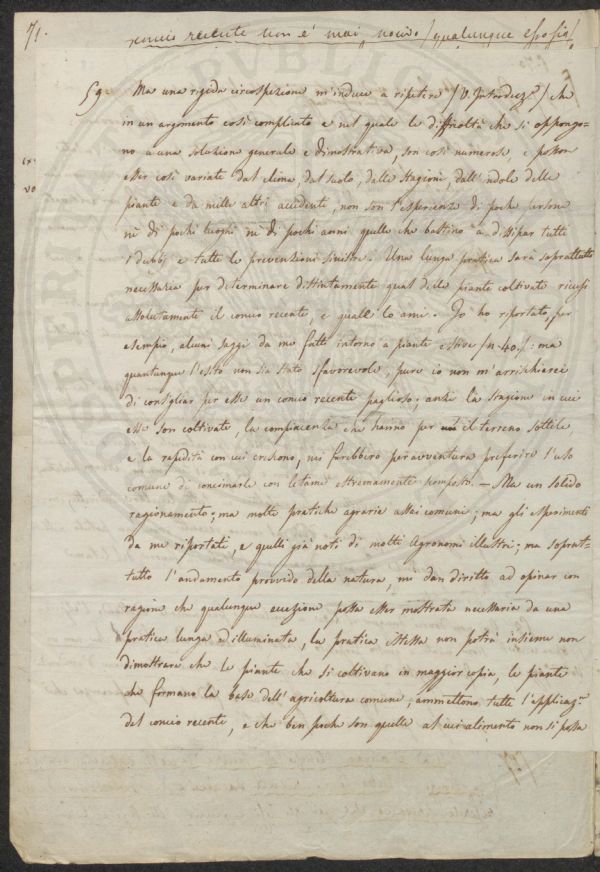 71.
concio recente non è mai nocivo (qualunque esso sia)
59. Ma una rigida circospezione m'induce a ripetere (V. Introduz.e) che
in un argomento così complicato e nel quale le difficoltà che si oppongo-
no a una soluzione generale e dimostrativa, son così numerose, e posson
esser così variate dal clima, dal suolo, dalle stagioni, dall'indole delle
piante e da mille altri accidenti, non son l'esperienze di poche persone
nè di pochi luoghi nè di pochi anni quelle che bastino a dissipar tutti
i dubbj e tutte le prevenzioni sinistre. Una lunga pratica sarà soprattutto
necessaria per determinare distintamente qual delle piante coltivate ricusi
assolutamente il concio recente, e quale lo ami. Io ho riportato, per
esempio, alcuni saggi da me fatti intorno a piante estive (n. 40.): ma
quantunque l'esito non sia stato sfavorevole, pure io non m'arrischierei
di consigliar per esse un concio recente paglioso; anzi la stagione in cui
esse son coltivate, la compiacenza che hanno per il terreno sottile
e la rapidità con cui crescono, mi farebbero peravventura preferire l'uso
comune di concimarle con letame estremamente scomposto. — Ma un solido
ragionamento; ma molte pratiche agrarie assai comuni; ma gli esperimenti
da me riportati, e quelli già noti di molti Agronomi illustri; ma soprat-
tutto l'andamento provvido della natura, mi dan diritto ad opinar con
ragione che qualunque eccezione possa esser mostrata necessaria da una
pratica lunga ed illuminata, la pratica istessa non potrà insieme non
dimostrare che le piante che si coltivano in maggior copia, le piante
che formano la base dell'agricoltura comune, ammettono tutte l'applicaz.e
del concio recente, e che ben poche son quelle al cui alimento non si possa